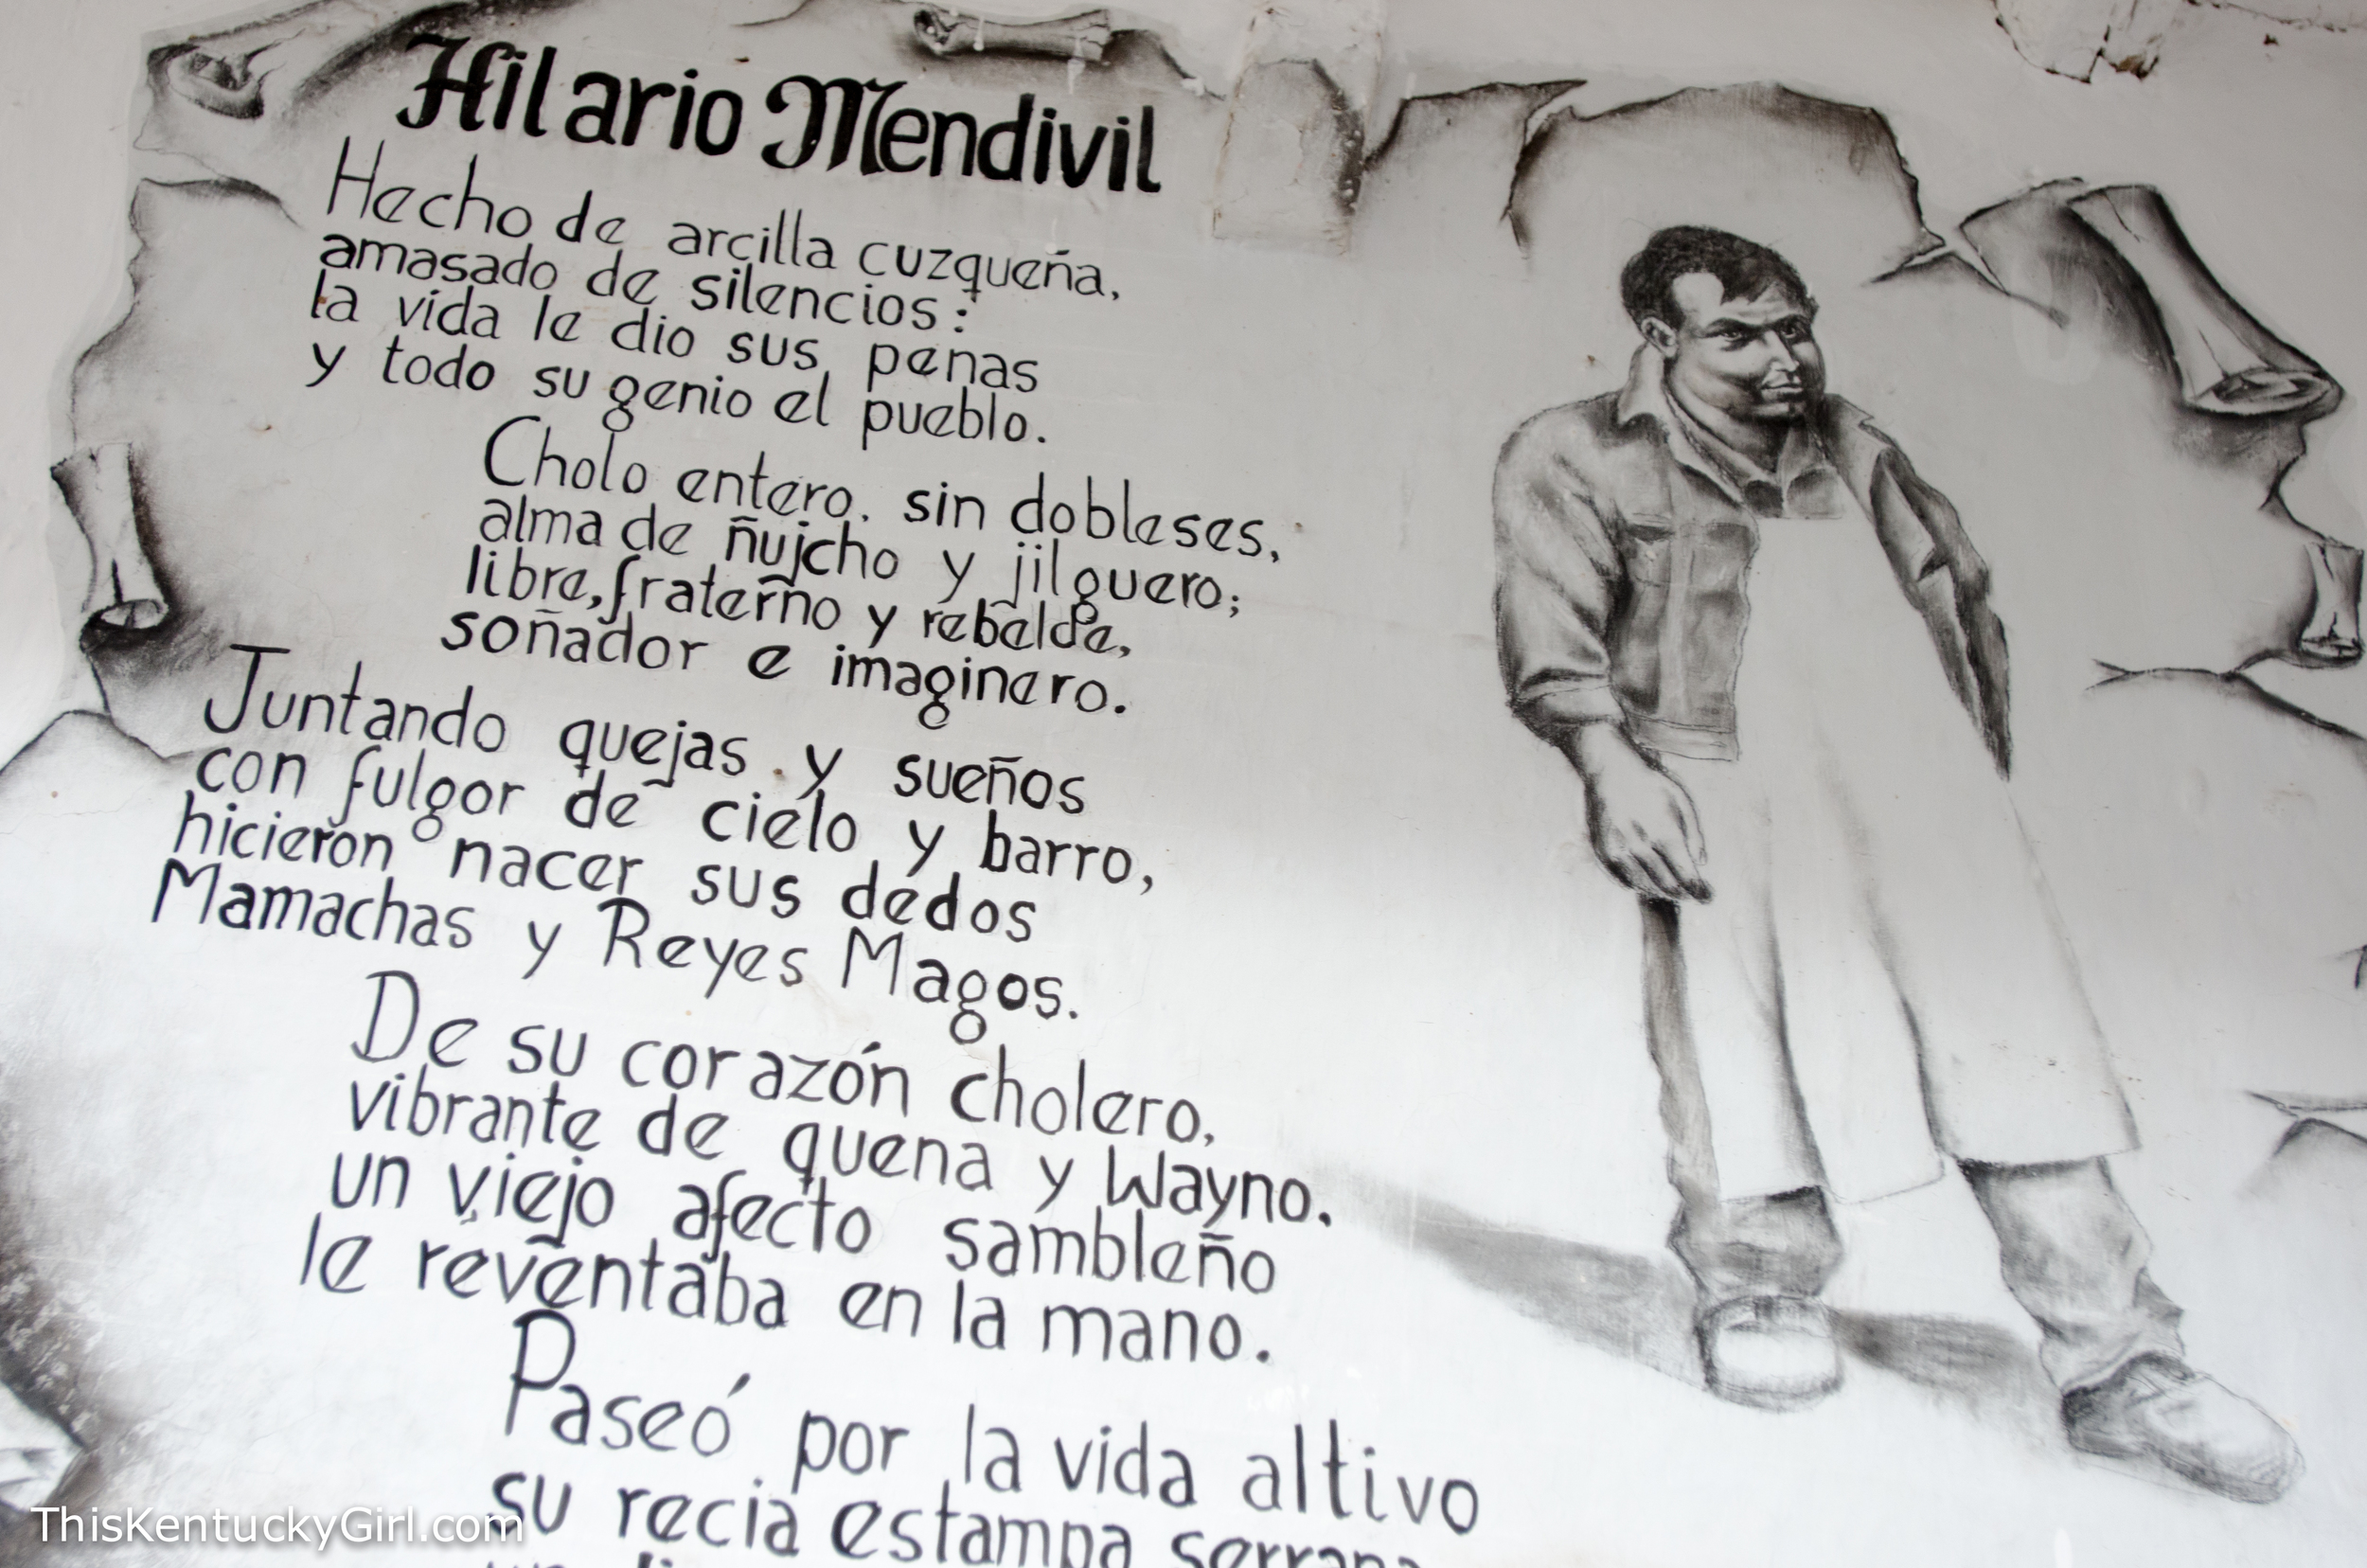 Hilario Mendivil
Hecho de arcilla cuzqueña,
amasado de silencios:
la vida le dio sus penas
y todo su genio el pueblo.
Cholo entero, sin dobleses,
alma de ñujcho y jilguero;
libre, fraterno y rebelde,
soñador e imaginero.
Juntando quejas y sueños
con fulgor de cielo y barro,
hicieron nacer sus dedos
Mamachas y Reyes Magos.
De su corazón cholero,
vibrante de quena y Wayno,
un viejo afecto sambleño
le reventaba en la mano.
Paseó por la vida altivo
su recia estampa serrana
ThisKentuckyGirl.com